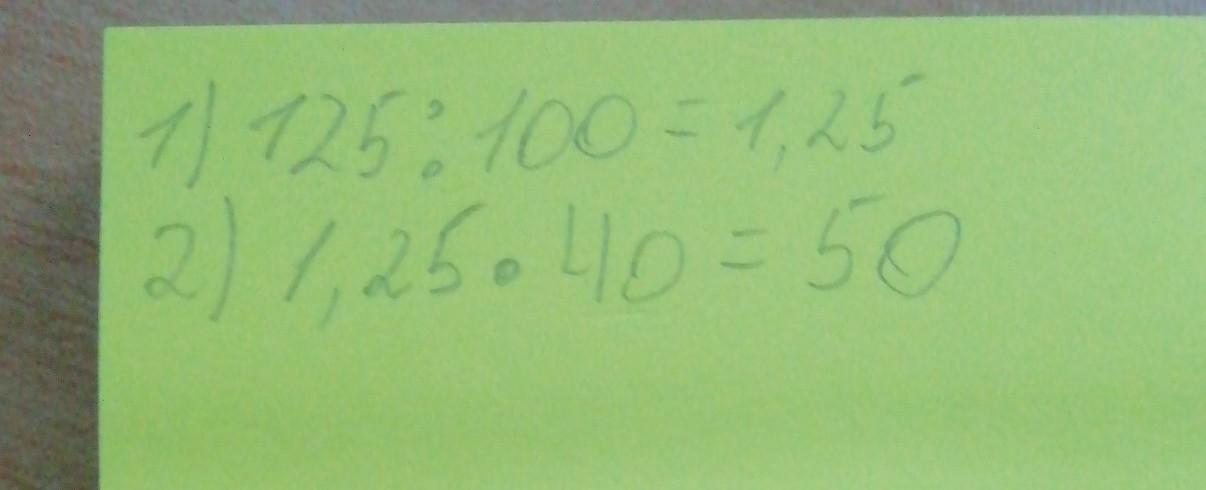 1) 125:100=1,25
2) 1,25•40=50